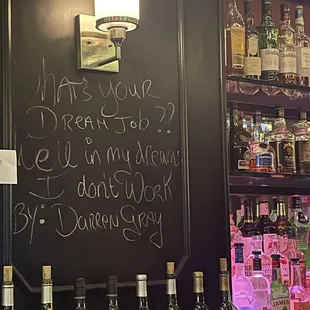 What's your
Dream Job??
Well in my dreams
I don't Work
By: Darren Gray